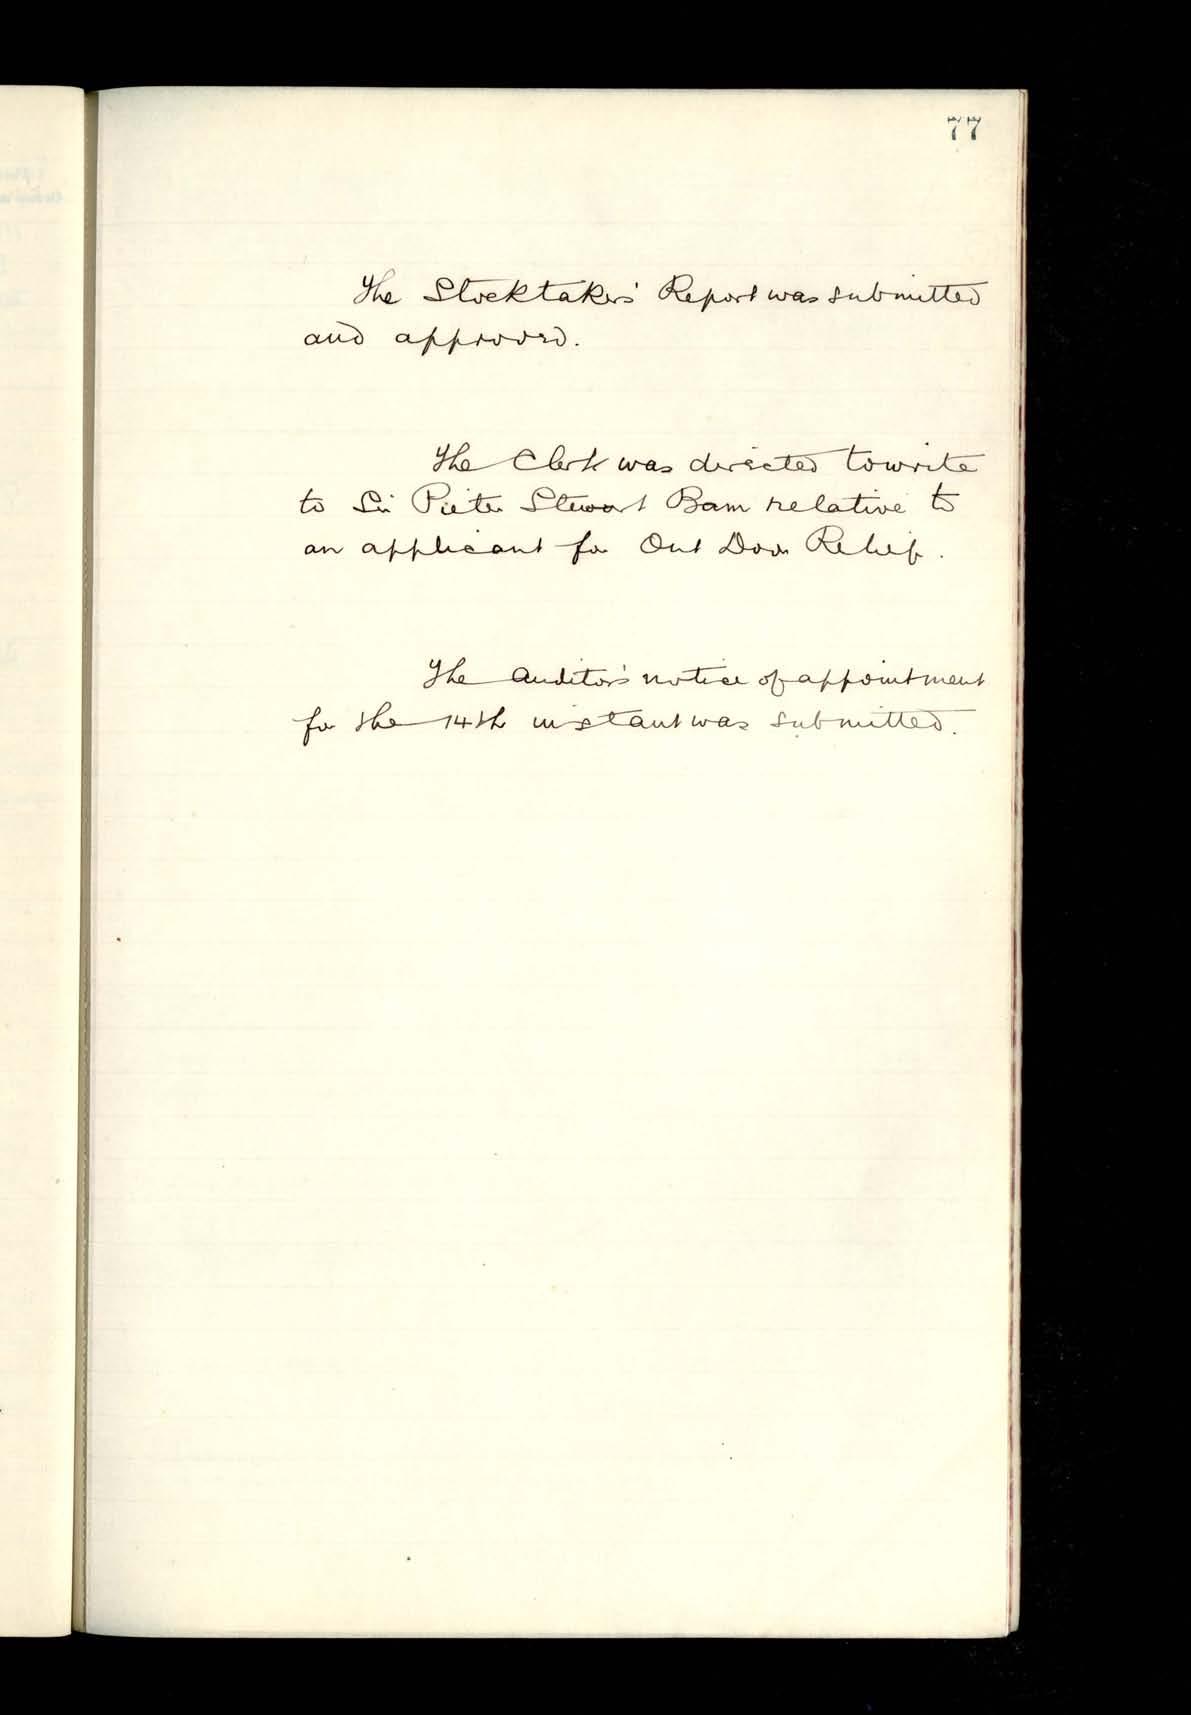 77
The Stocktakers' Report was submitted
and approved.
The Clerk was directed to write
to Sir Pieter Stewart Bam relative to
an applicant for Out Door Relief.
The Auditor's notice of appointment
for the 14th instant was submitted.